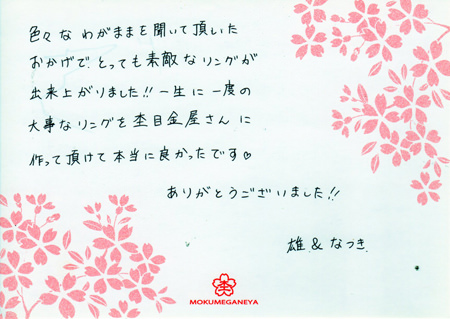 色々なわがままを聞いて頂いた
おかげで、とっても素敵なリングが
出来上がりました!! 一生に一度の
大事なリングを杢目金屋さんに
作って頂けて本当に良かったです♡
ありがとうございました!!
雄 & なつき
杢
MOKUMEGANEYA